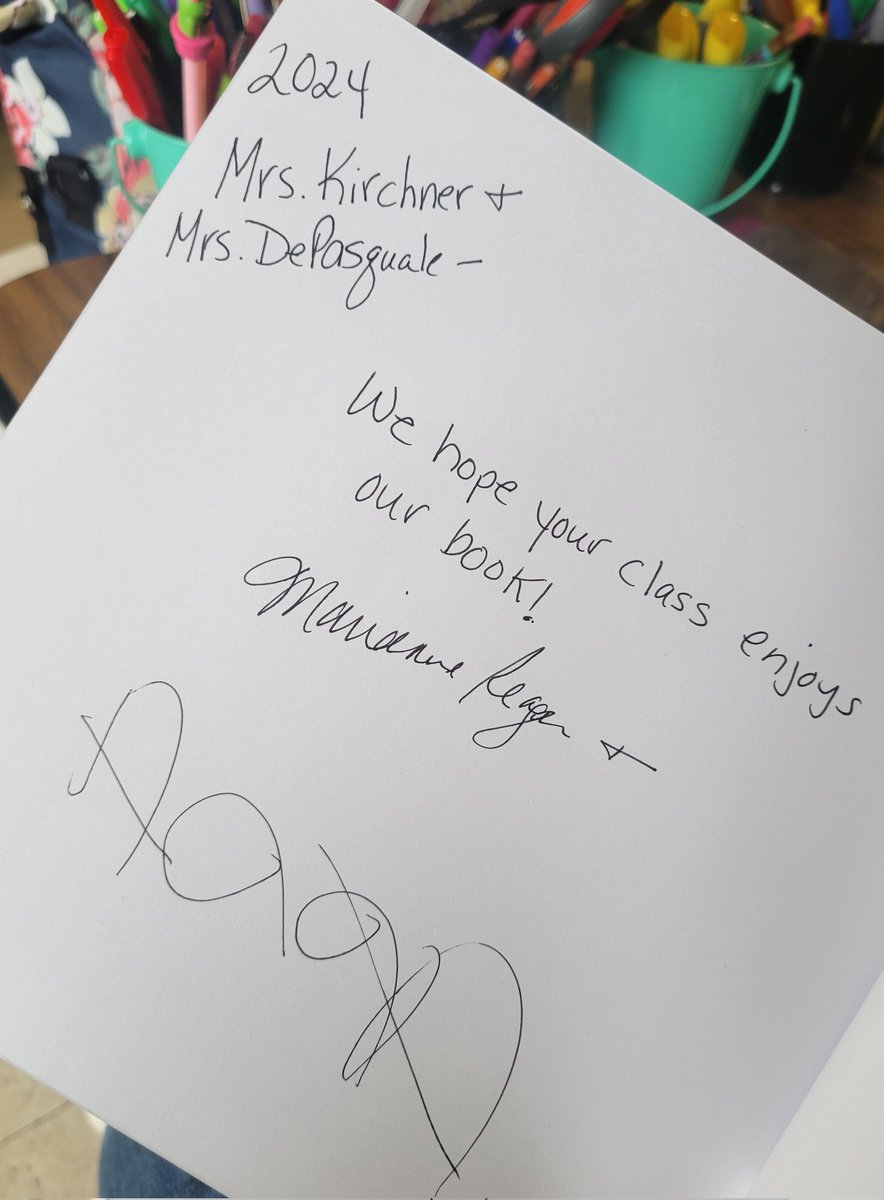 2024
Mrs. Kirchner +
Mrs. DePasquale -
We hope your class enjoys
our book!
Marianne Regan +